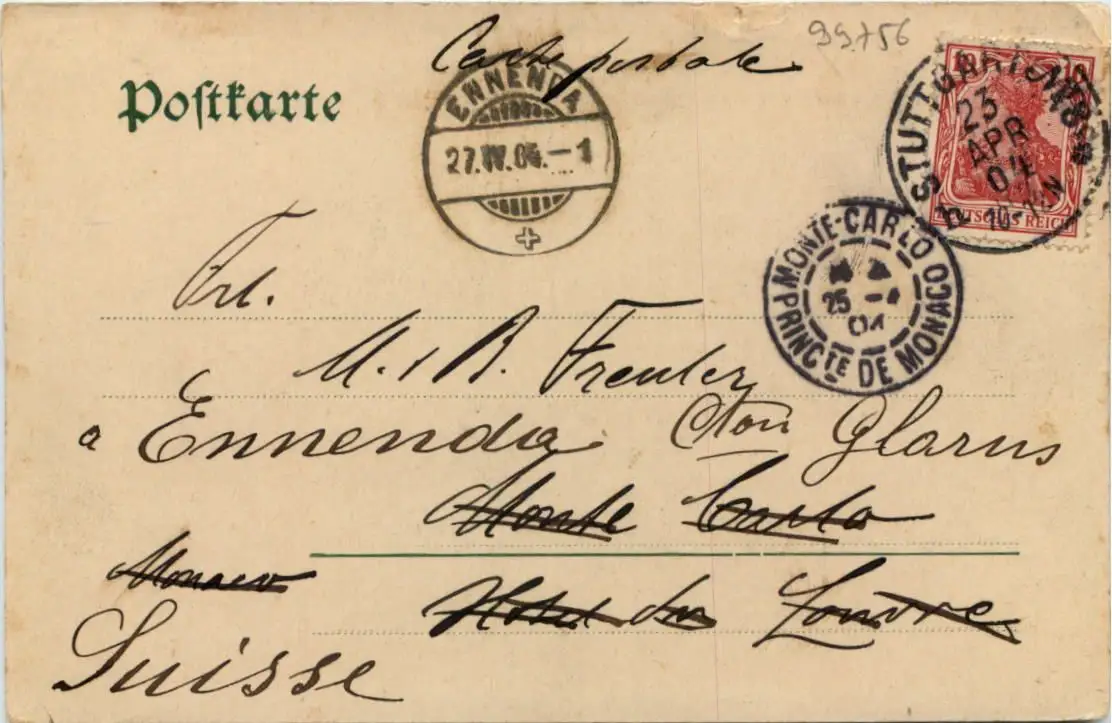 99756
Carte postale
Postkarte
ENNENDA
27.IV.04.–1
STUTTGART
23
APR
04
10-11N
DEUTSCHES REICH
MONTE-CARLO
25 -4
04
PRINCTE DE MONACO
Frl.
M. & B. Freuler
a Ennenda Cton Glarus
Monte Carlo
Monaco
Hotel du Louvre
Suisse